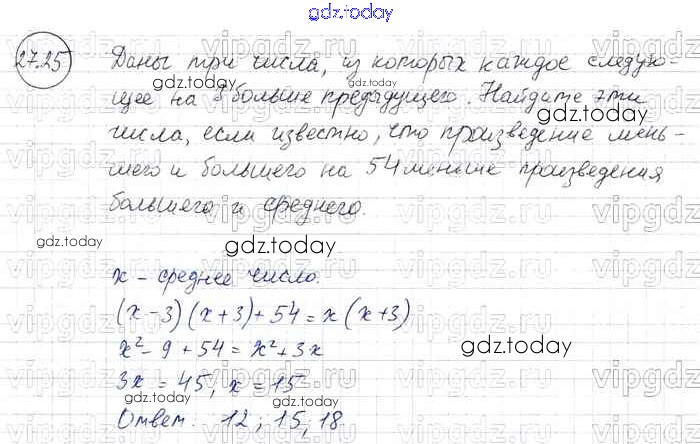 gdz.today
27.25 Даны три числа, из которых каждое следую-
gdz.today gdz.today
щее на больше предыдущего. Найдите эти
числа, если известно, что произведение мень-
шего и большего на 54 меньше произведения
большего и среднего.
gdz.today gdz.today
x - среднее число.
(x-3)(x+3)+54=x(x+3)
gdz.today
x²-9+54=x²+3x
3x=45, x=15
gdz.today
Ответ: 12; 15, 18
vipgdz.ru